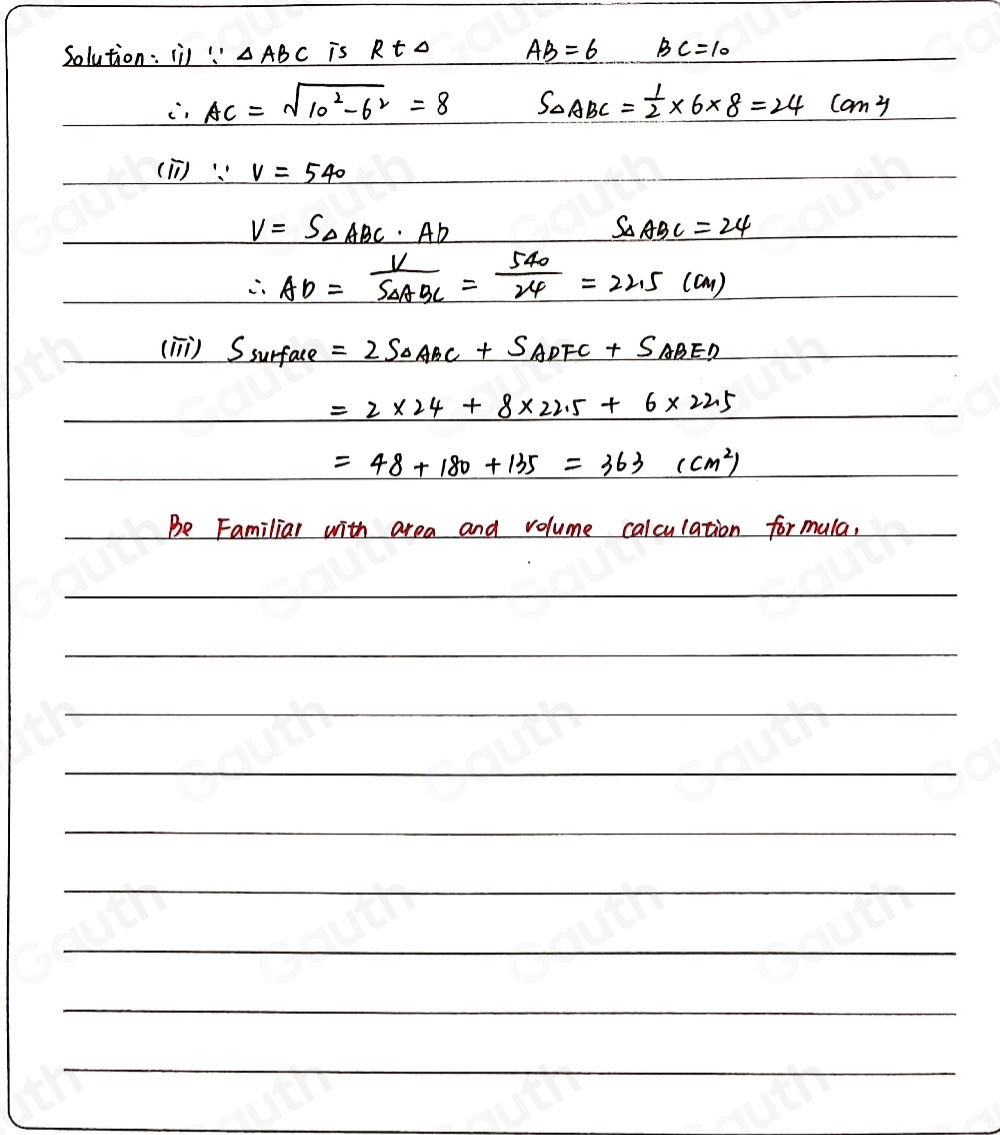 Solution: (i) ∵ △ABC is Rt△ AB=6 BC=10
∴ AC = √(10²-6²) = 8 S△ABC = 1/2 × 6 × 8 = 24 (cm²)
(ii) ∵ V = 540
V = S△ABC · AD S△ABC = 24
∴ AD = V/S△ABC = 540/24 = 22.5 (cm)
(iii) S surface = 2S△ABC + SADFC + SABED
= 2 × 24 + 8 × 22.5 + 6 × 22.5
= 48 + 180 + 135 = 363 (cm²)
Be Familiar with area and volume calculation formula.